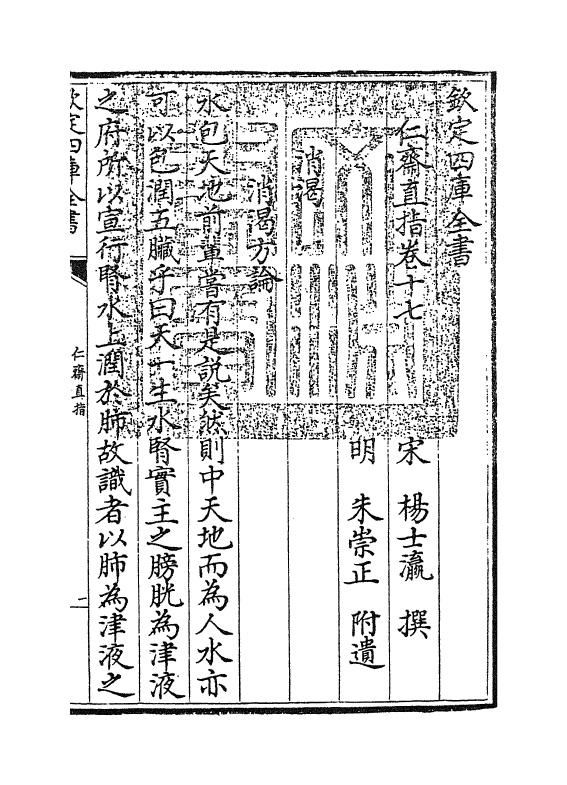 欽定四庫全書
仁齋直指卷十七
宋 楊士瀛 撰
明 朱崇正 附遺
消渴
消渴方論
水包天地前輩嘗有是說矣然則中天地而為人水亦
可以包潤五臟乎曰天一生水腎實主之膀胱為津液
之府所以宣行腎水上潤於肺故識者以肺為津液之
欽定四庫全書
仁齋直指
二